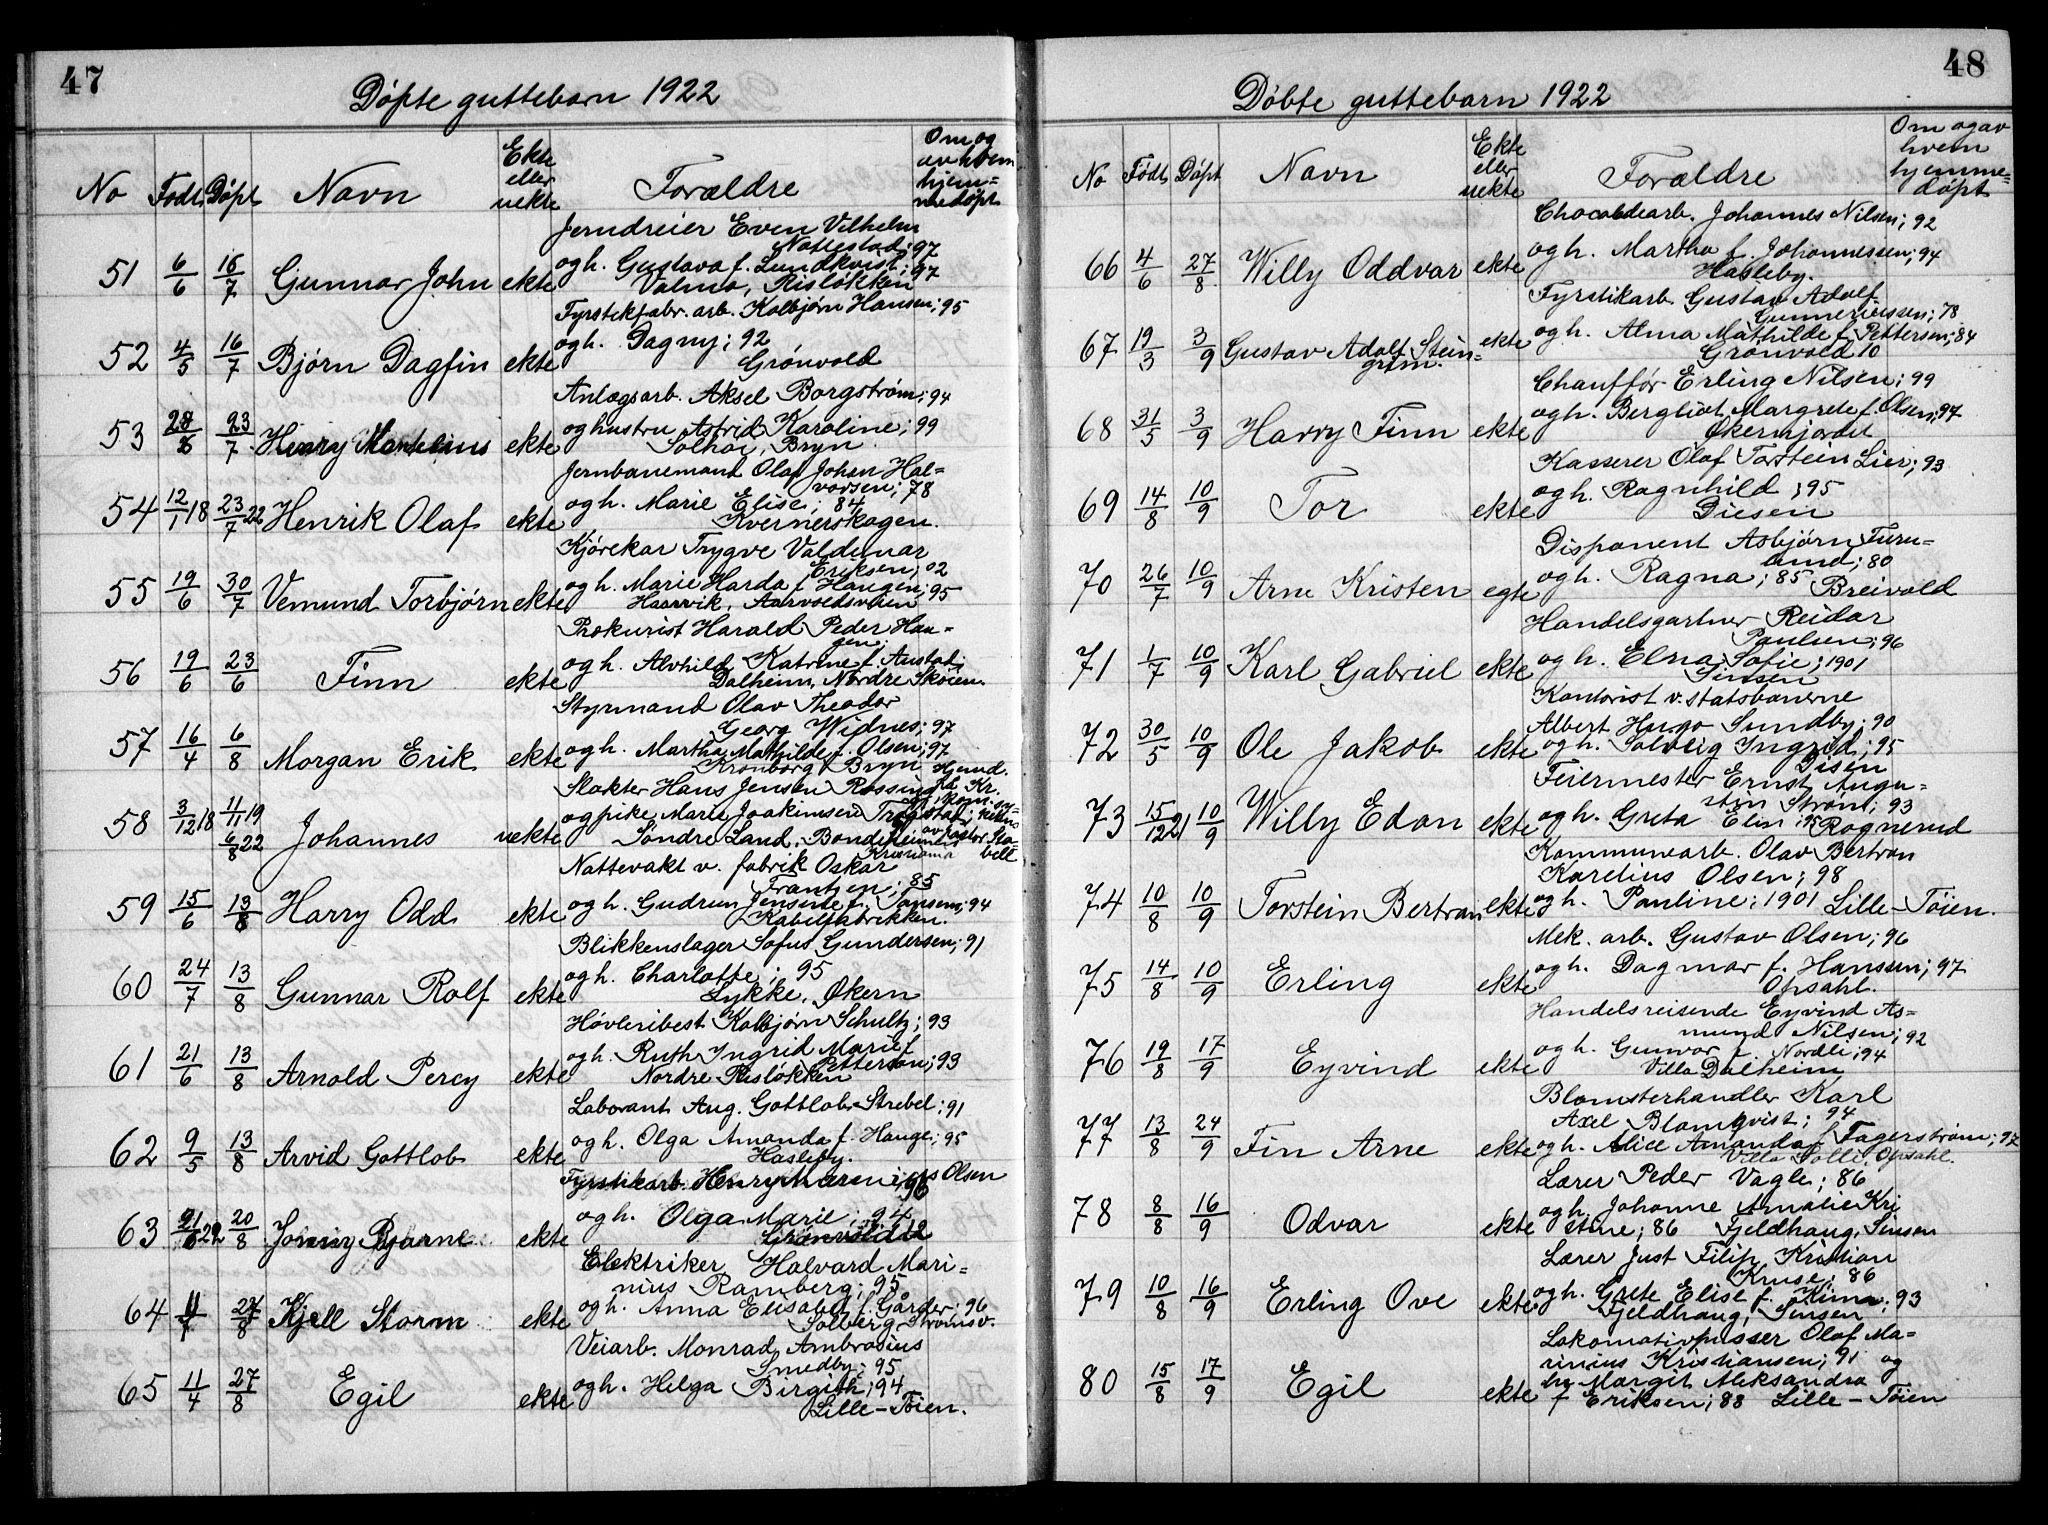 47
Døpte guttebarn 1922
No Født Døpt Navn Ekte eller uekte Forældre Om og av hvem hjemmedøpt
Jerndreier Even Vilhelm
Nattestad; 97
51 6/6 16/7 Gunnar John ekte og h. Gustava f. Lundkvist; 97
Valmo, Risløkken
Fyrstikfabr. arb. Kolbjørn Hansen; 95
52 4/5 16/7 Bjørn Dagfin ekte og h. Dagny; 92
Grønvold
Anlægsarb. Aksel Borgstrøm; 94
53 23/7 Henry ekte og hustru Astrid Karoline; 99
Solhøi, Bryn
Jernbanemand Olaf Johan Hal=
vorsen; 78
54 12/1 18 23/7 22 Henrik Olaf ekte og h. Marie Elise; 84
Kvernerskogen.
Kjørekar Trygve Valdemar
Eriksen; 02
55 19/6 30/7 Vemund Torbjørn ekte og h. Marie Harda f. Haugen; 95
Haavik, Aarvoldsveien
Prokurist Harald Peder Hau=
gen
56 19/6 23/6 Finn ekte og h. Alvhild Katrine f. Austad;
Dalheim, Nordre Skøien.
Styrmand Olav Theodor
Georg Widnes; 97
57 16/4 6/8 Morgan Erik ekte og h. Martha Mathilde f. Olsen; 97
Kronborg Bryn
Slakter Hans Jensen Rossing
58 3/12 18 11/11 19 6/8 22 Johannes uekte og pike Marie Joakimsen
Søndre Land, Bondeheimen
Kristiania
Nattevakt v. fabrik Oskar
Frantzen; 85
59 15/6 13/8 Harry Odd ekte og h. Gudrun Jensine f. Jansen; 94
Kabelfabrikken.
Blikkenslager Sofus Gundersen; 91
60 24/7 13/8 Gunnar Rolf ekte og h. Charlotte; 95
Lykke, Økern
Høvleribest Kolbjørn Schultz; 93
61 21/6 13/8 Arnold Percy ekte og h. Ruth Ingrid Marie f.
Petterson; 93
Nordre Risløkken
Laborant Aug. Gottlob Strebel; 91
62 9/5 13/8 Arvid Gottlob ekte og h. Olga Amanda f. Hauge; 95
Hasleby.
Fyrstikarb. Henry Olsen
96
63 20/8 Bjarne ekte og h. Olga Marie; 94
Elektriker Halvard Mari=
nius Ramberg; 95
64 Kjell Storm ekte og h. Anna Elisabet f. Gårder; 96
Solberg Strømsv.
Veiarb. Monrad Ambrosius
Smedby; 95
65 11/7 27/8 Egil ekte og h. Helga Birgith; 94
Lille-Tøien.
48
Døbte guttebarn 1922
No Født Døpt Navn Ekte eller uekte Forældre Om og av hvem hjemmedøpt
Chocoladearb. Johannes Nilsen; 92
66 4/6 27/8 Willy Oddvar ekte og h. Martha f. Johannessen; 94
Hasleby.
Fyrstikarb. Gustav Adolf
Gunneriussen; 78
67 19/3 3/9 Gustav Adolf Stein=
grim. ekte og h. Alma Mathilde f. Pettersen; 84
Grønvold 10
Chauffør Erling Nilsen; 99
68 31/5 3/9 Harry Finn ekte og h. Bergliot Margrete f. Olsen; 97
Økernjordet
Kasserer Olaf Torstein Lier; 93
69 14/8 10/9 Tor ekte og h. Ragnhild; 95
Disen
Disponent Asbjørn Furu=
lund; 80
70 26/7 10/9 Arne Kristen egte og h. Ragna; 85 Breivold
Handelsgartner Reidar
Paulsen; 96
71 1/7 10/9 Karl Gabriel ekte og h. Elna Sofie; 1901
Sinsen
Kontorist v. statsbanerne
Albert Hugo Sundby; 90
72 30/5 10/9 Ole Jakob ekte og h. Solveig Ingrid; 95
Disen
Feiermester Ernst Augu=
stin Strøm; 93
73 15/12 21 10/9 Willy Edon ekte og h. Greta Elin; 95 Rognerud
Kommunearb. Olav Bertran
Karelius Olsen; 98
74 10/8 10/9 Torstein Bertran ekte og h. Pauline; 1901 Lille-Tøien.
Mek. arb. Gustav Olsen; 96
75 14/8 10/9 Erling ekte og h. Dagmar f. Hanssen; 97
Opsahl.
Handelsreisende Eyvind As=
mund Nilsen; 92
76 19/8 17/9 Eyvind ekte og h. Gunvor f. Nordli; 94
Villa Dalheim
Blomsterhandler Karl
Axel Blomqvist; 94
77 13/8 24/9 Fin Arne ekte og h. Alice Amanda f. Fagerstrøm; 97
Villa Solli, Opsahl.
Lærer Peder Vagle; 86
78 8/8 16/9 Odvar ekte og h. Johanne Amalie Kri
stine; 86 Fjeldhaug, Sinsen
Lærer Just Filip Kristian
Kruse; 86
79 10/8 16/9 Erling Ove ekte og h. Grete Elise f. Kima; 93
Fjeldhaug, Sinsen
Lokomotivpusser Olaf Ma=
rinius Kristiansen; 91 og
80 15/8 17/9 Egil ekte h. Margit Aleksandra
f Eriksen; 88 Lille-Tøien